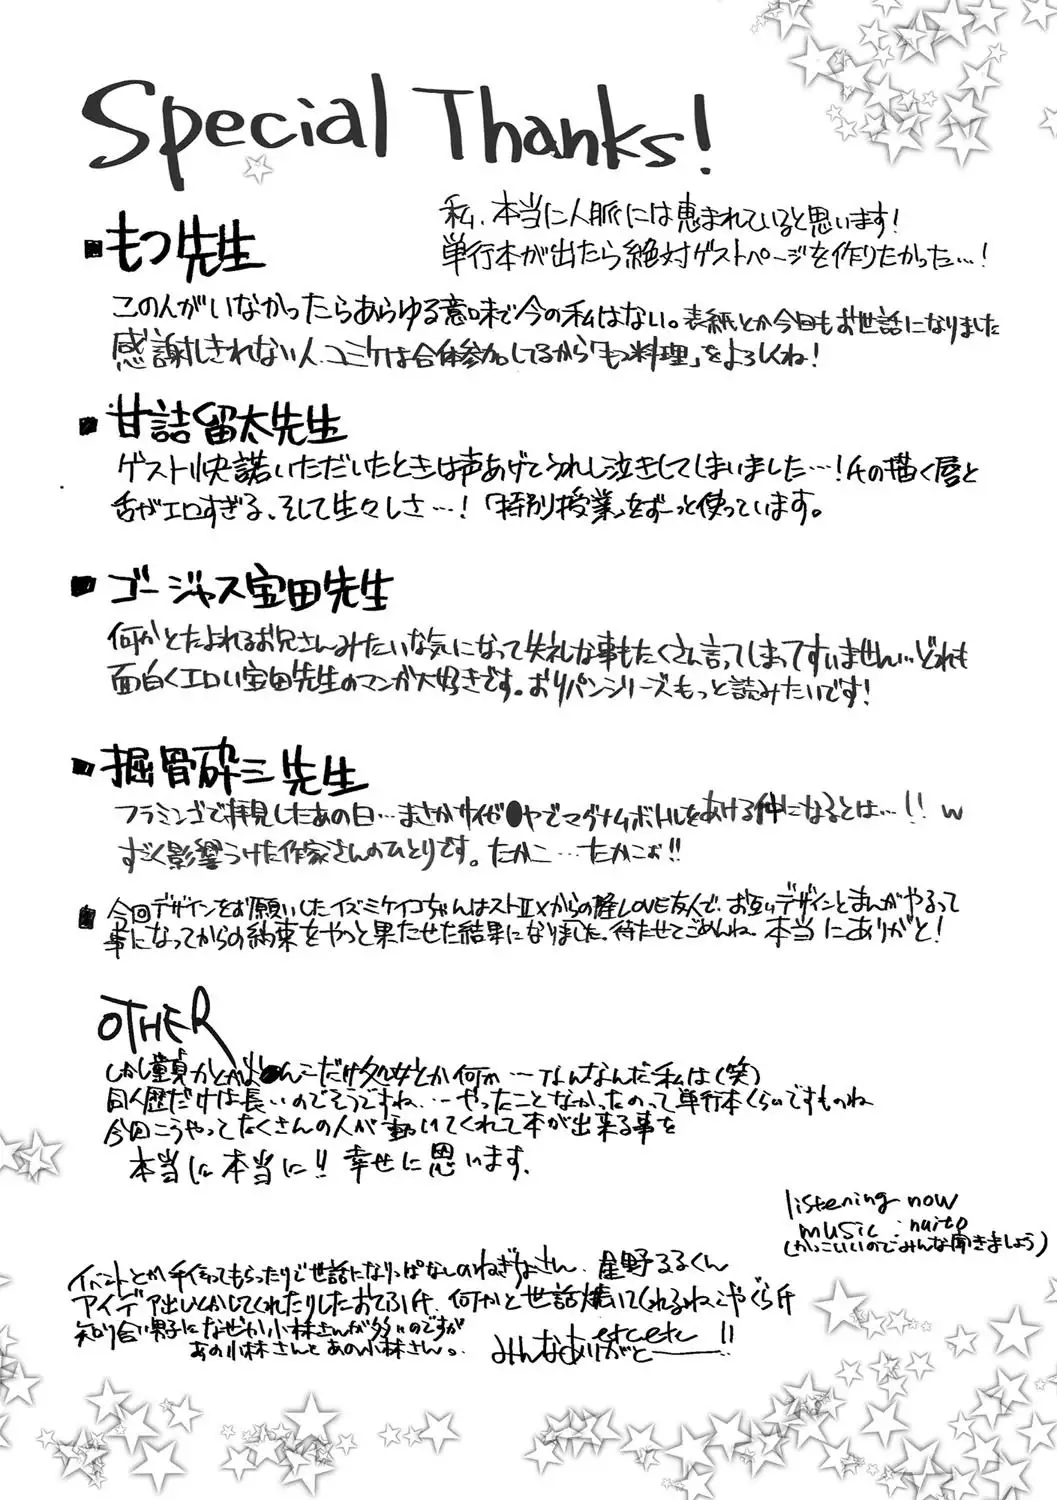 Special Thanks!
私、本当に人脈には恵まれていると思います!
単行本が出たら絶対ゲストページを作りたかった…!
■もつ先生
この人がいなかったらあらゆる意味で今の私はない。表紙とか今回もお世話になりました
感謝しきれない人、コミケは合体参加してるから「もつ料理」をよろしくね!
■甘詰留太先生
ゲスト快諾いただいたときは声あげてうれし泣きしてしまいました…!氏の描く唇と
舌がエロすぎる、そして生々しさ…!「特別授業」をずーっと使っています。
■ゴージャス宝田先生
何かとたよれるお兄さんみたいな気になって失礼な事もたくさん言ってしまってすいません…どれも
面白くエロい宝田先生のマンガ大好きです。おりパンシリーズもっと読みたいです!
■掘骨砕三先生
フラミンゴで拝見したあの日…まさかサイゼ●ヤでマグナムボトルをあける仲になるとは…!! w
すごく影響うけた作家さんのひとりです。たかこ…たかこぉ!!
■今回デザインをお願いしたイズミケイコちゃんはストⅡXからの隆LOVE友人で、お互いデザインとまんがやるって
事になってからの約束をやっと果たせた結果になりました。待たせてごめんね。本当にありがと!
OTHER
しかし童貞かとか●んこだけ処女とか何か…なんなんだ私は(笑)
同人歴だけは長いのでそうですね…やったことなかったのって単行本くらいですものね
今回こうやってたくさんの人が動いてくれて本が出来る事を
本当に本当に!!幸せに思います。
listening now
music : naito
(かっこいいのでみんな聞きましょう)
イベントとか手伝ってもらったりで世話になりっぱなしのねぎなさん、星野るるくん
アイデア出しとかしてくれたりしたおてふ氏、何かと世話焼いてくれるねこやぐら氏
知り合い男子になぜか小林さんが多いのですが
あの小林さんとあの小林さん。
etcetc
みんなありがと――!!